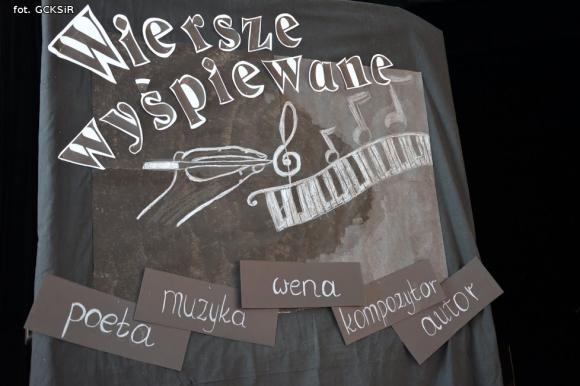 fot. GCKSiR
Wiersze
Wyśpiewane
poeta
muzyka
wena
kompozytor
autor